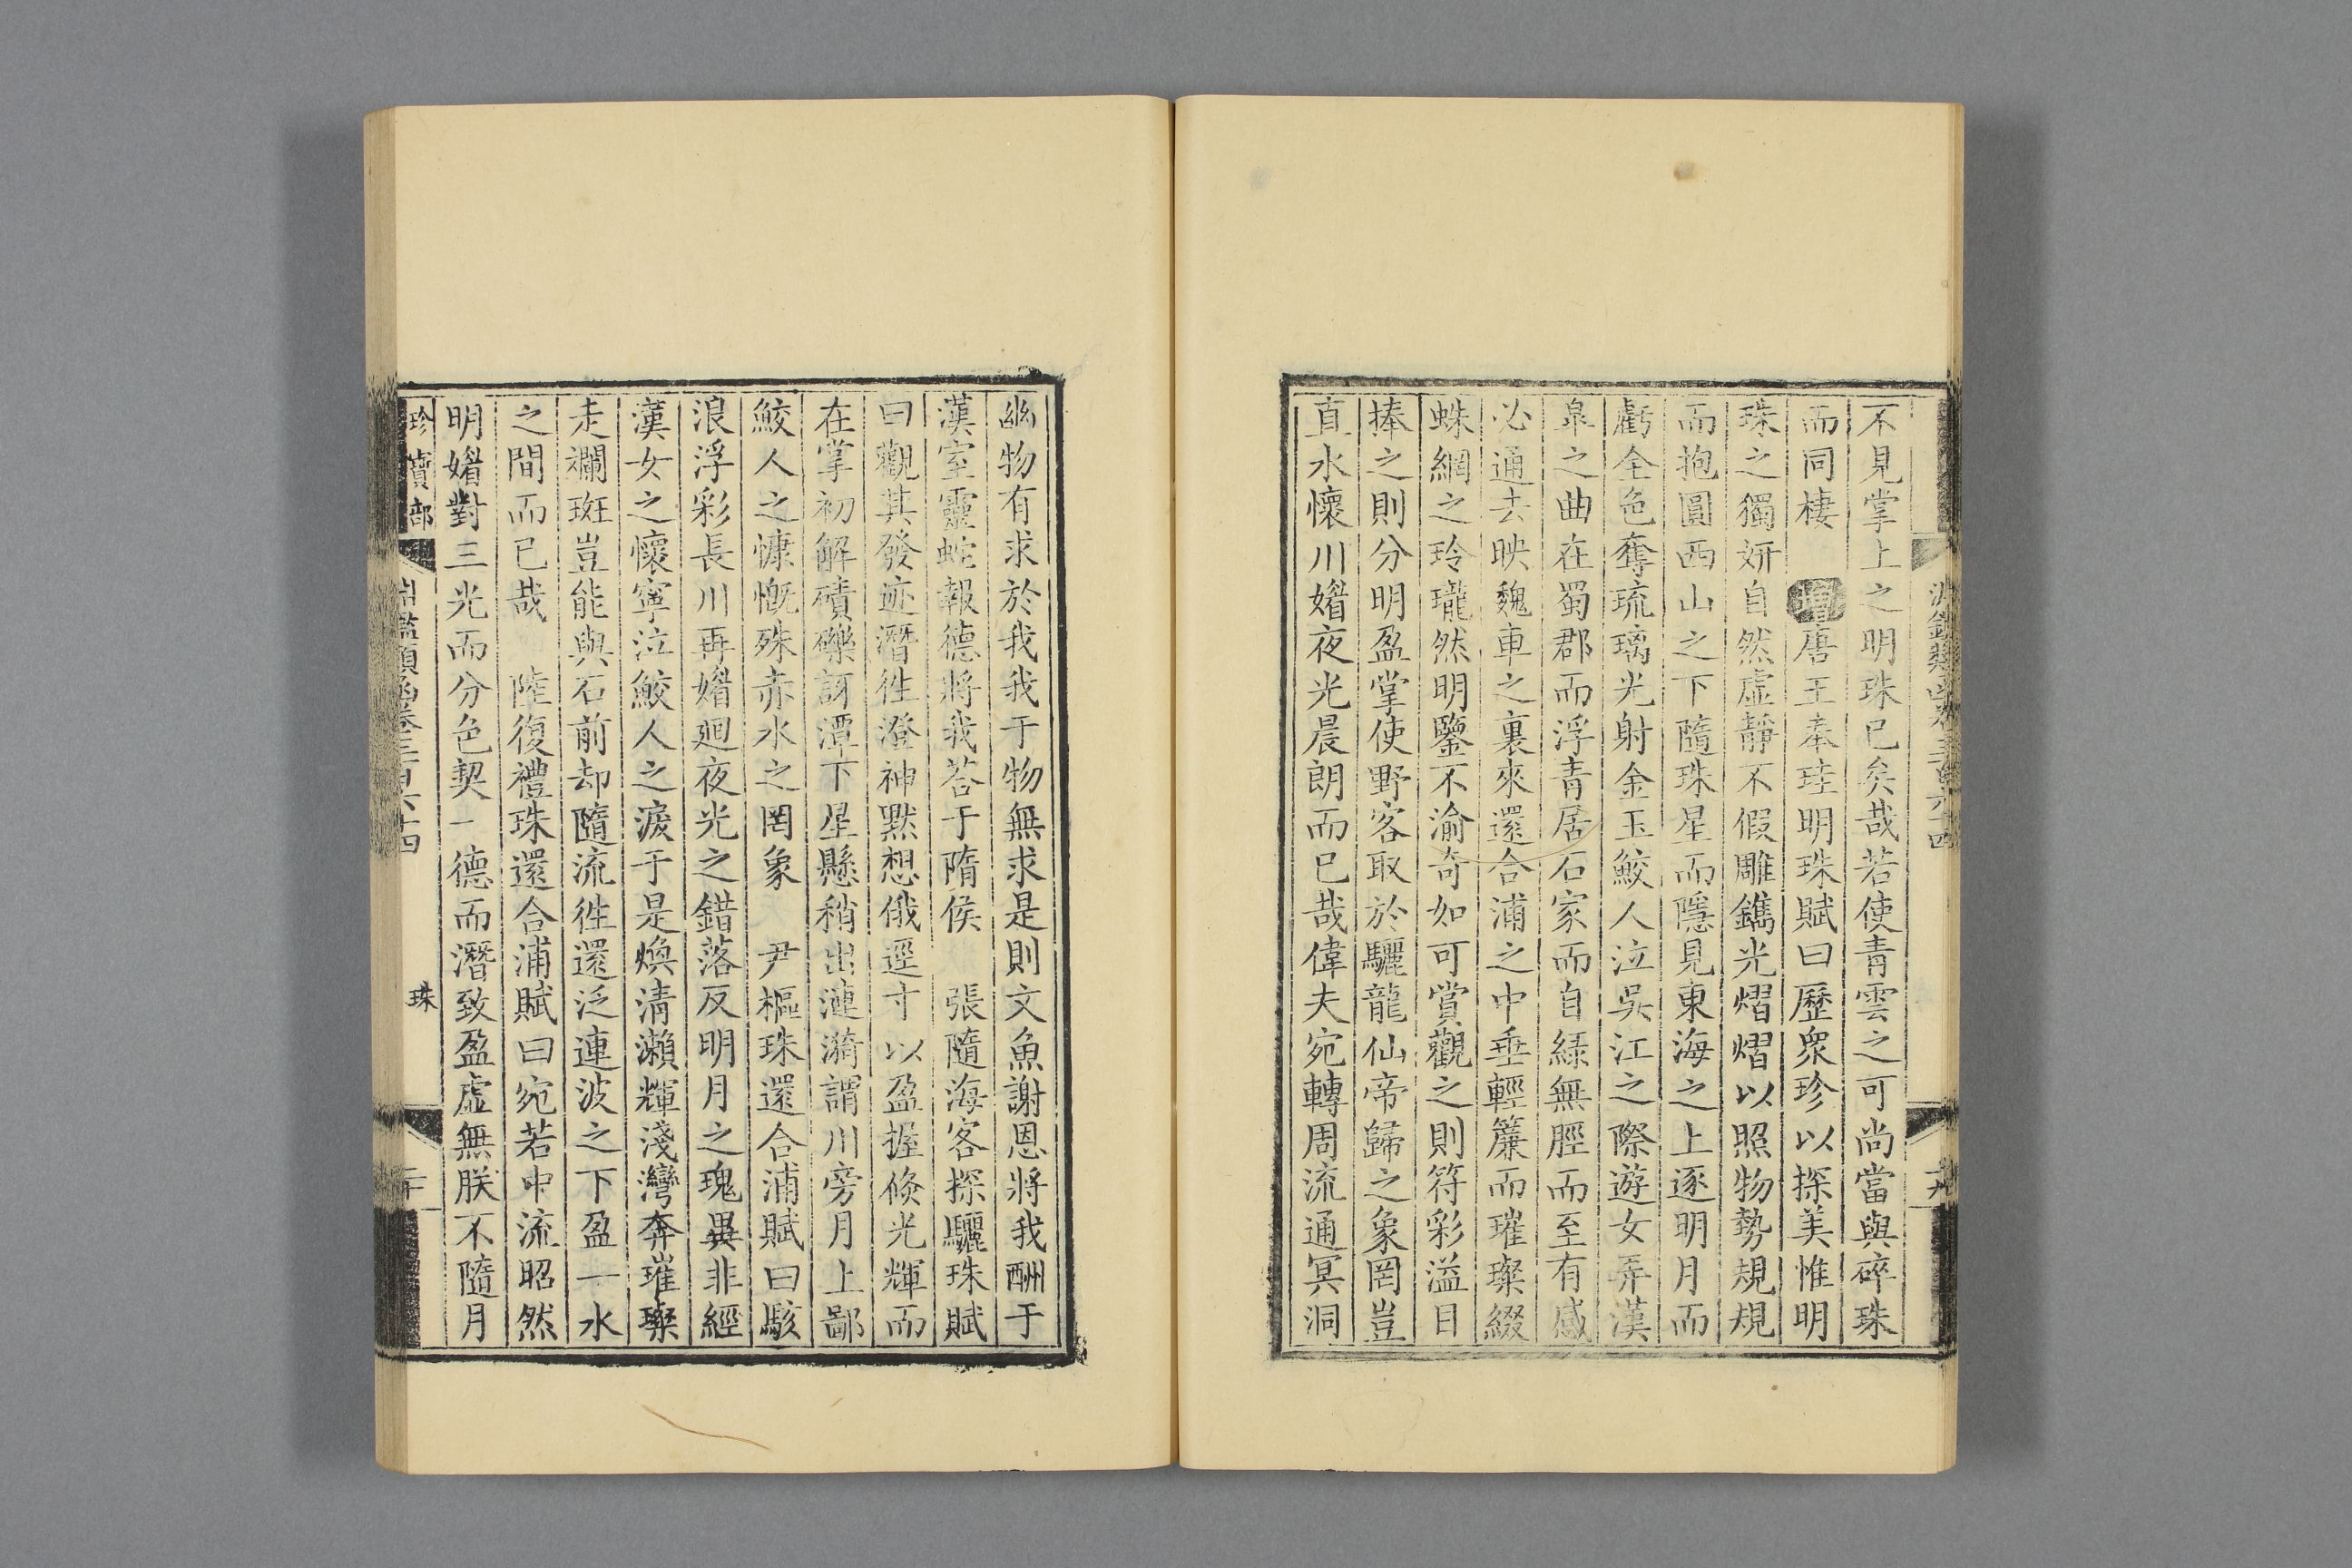 不見掌上之明珠已矣哉若使青雲之可尚當與碎珠
而同棲　增唐王奉珪明珠賦曰歷衆珍以探美惟明
珠之獨妍自然虛靜不假雕鐫光熠熠以照物勢規規
而抱圓西山之下隨珠星而隱見東海之上逐明月而
虧全色奪琉璃光射金玉鮫人泣吳江之際遊女弄漢
皐之曲在蜀郡而浮青居石家而自綠無脛而至有感
必通去映魏車之裏來還合浦之中垂輕簾而璀璨綴
蛛網之玲瓏然明鑒不渝奇如可賞觀之則符彩溢目
捧之則分明盈掌使野客取於驪龍仙帝歸之象罔豈
直水懷川媚夜光晨朗而已哉偉夫宛轉周流通冥洞
幽物有求於我我于物無求是則文魚謝恩將我酬于
漢室靈蛇報德將我荅于隋侯　張隨海客探驪珠賦
曰觀其發迹潛徃澄神黙想俄逕寸以盈握倏光輝而
在掌初解磧礫訝潭下星懸稍出漣漪謂川旁月上鄙
鮫人之慷慨殊赤水之罔象　尹樞珠還合浦賦曰駭
浪浮彩長川再媚廻夜光之錯落反明月之瑰異非經
漢女之懷寧泣鮫人之淚于是煥清瀨輝淺灣奔璀璨
走斕斑豈能與石前却隨流徃還泛連波之下盈一水
之間而已哉　陸復禮珠還合浦賦曰宛若中流昭然
明媚對三光而分色契一德而潛致盈虛無朕不隨月
珍寶部　淵鑑類函卷三百六十四　珠　二十